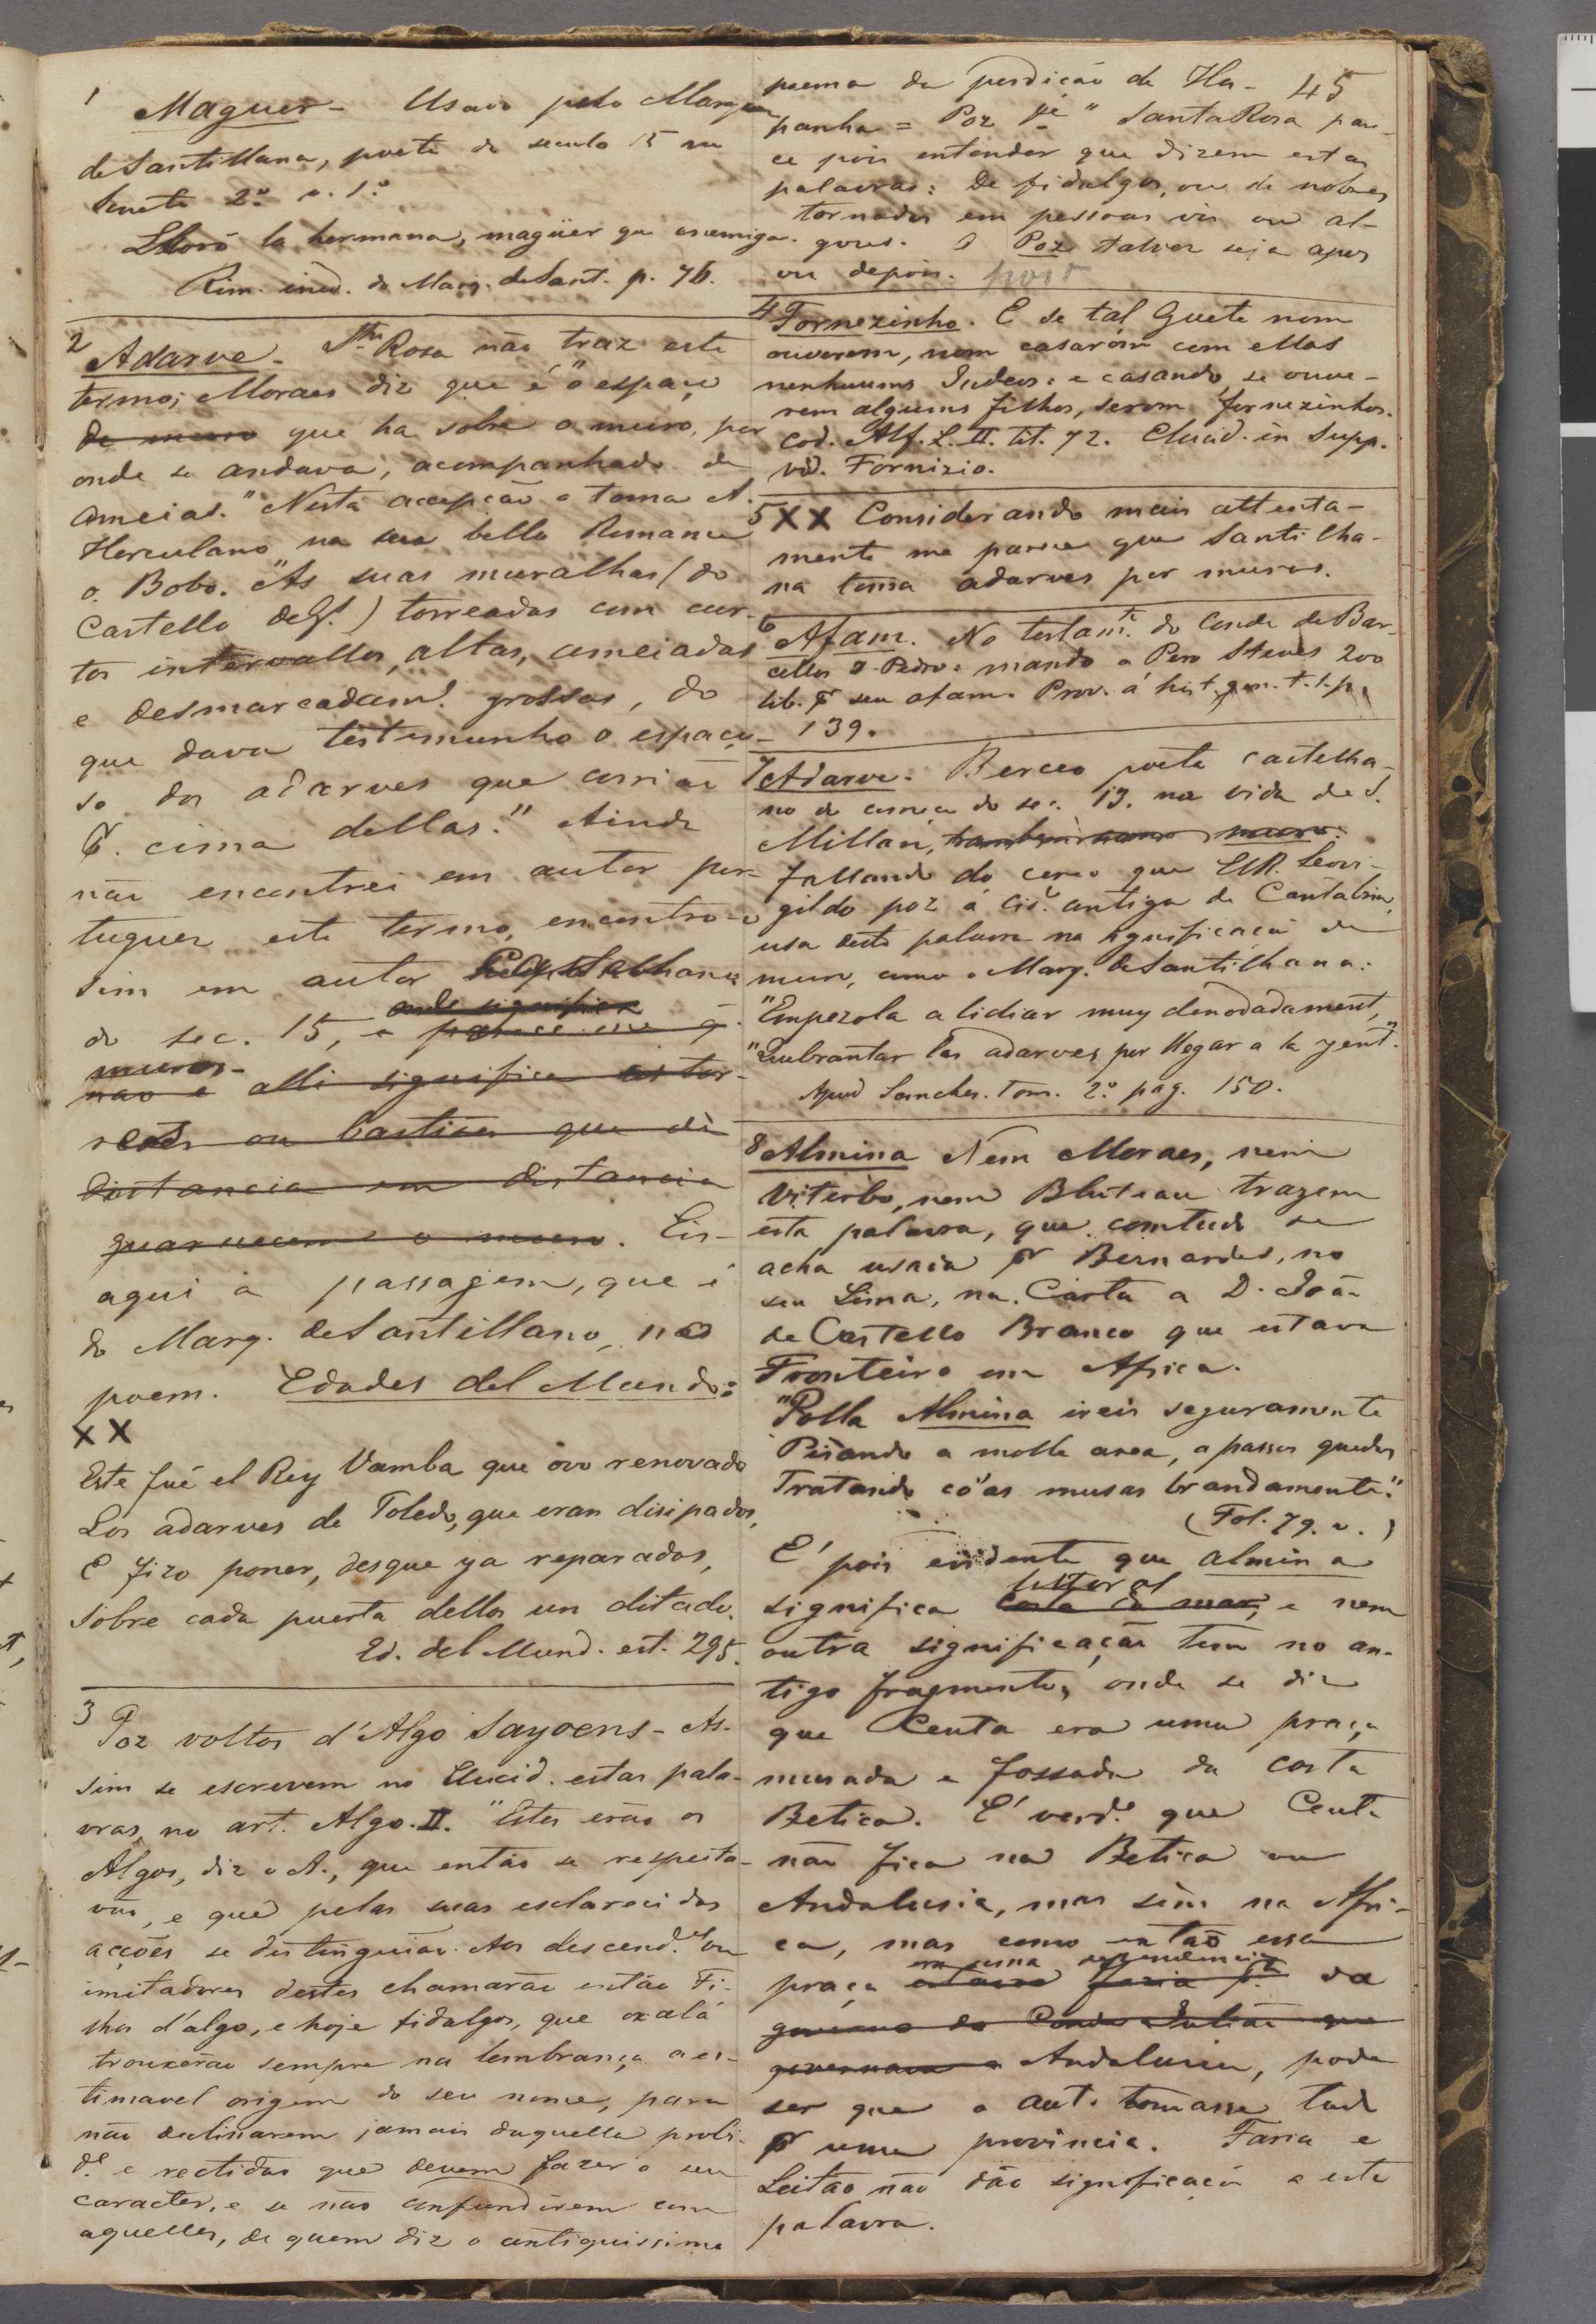 1
Maguer - Usado pelo Marquez
de Santillana, poeta do seculo 15 no
Soneto 2.º v. 1.º
Lloró la hermana, magüer que enemiga.
Rim. ined. do Marq. de Sant. p. 76.
2
Adarve - Sta Rosa não traz este
termo; Moraes diz que é "o espaço
do muro que ha sobre o muro, por
onde se andava, acompanhado de
ameias." Nesta accepção o toma A.
Herculano no seu bello Romance
o Bobo. "As suas muralhas (do
Castello de G.) torreadas com cur-
tos intervallos, altas, ameiadas
e desmarcadam.e grossas, do
que dava testemunho o espaço-
so dos adarves que corrião
p. cima dellas." Ainda
não encontrei em autor por-
tuguez este termo, encontro-o
sim em autor Castelhano
onde significa
do sec. 15, e parece-me q
muros-
não é alli significa as tor-
reões ou bastiões que de
distancia em distancia
guarnecem o muro. Eis-
aqui a passagem, que é
do Marq. de Santillano, no
poem. Edades del Mundo:
XX
Este fué el Rey Vamba que ovo renovado
Los adarves de Toledo, que eran disipados,
E fizo poner, desque ya reparados,
Sobre cada puerta dellos un ditado.
Ed. del Mund. est. 295.
3
Poz voltos d'Algo Sayoens - As-
sim se escrevem no Elucid. estas pala-
vras, no art. Algo. II. "Estes erão os
Algos, diz o A., que então se respeita-
vão, e que pelas suas esclarecidas
acções se distinguião. Aos descend.es ou
imitadores destes chamarão então Fi-
lhos d'algo, e hoje fidalgos, que oxalá
trouxerão sempre na lembrança a es-
timavel origem do seu nome, para
não declinarem jamais daquella probi-
d.e e rectidão que devem fazer o seu
caracter, e se não confundirem com
aquelles, de quem diz o antiquissimo
45
poema da perdição de Hes-
panha = Poz &c." Santa Rosa pare-
ce pois entender que dizem estas
palavras: De fidalgos, ou de nobres
tornados em pessoas vis ou al-
gozes. O Poz talvez seja apos
ou depois. post
4
Fornezinho. E se tal Guete nom
ouverem, nom casaróm com ellas
nenhuums Judeos: e casando, se ouve-
rem alguuns filhos, serom fornezinhos.
Cod. Alf. L. II. tit. 72. Elucid. in Supp.
vid. Fornizio.
5 XX Considerando mais attenta-
mente me parece que Santilha-
na toma adarves por muros.
6
Afam. No testam.to do Conde de Bar-
cellos D. Pedro: mando a Pero Steves 200
lib. p seu afam. Prov. á hist. gen. t. 1. p.
139.
7 Adarve. Berceo poeta castelha-
no do começo do sec. 13. na vida de S.
Millan, tambem como muro.
fallando do cerco que ElR. Leovi-
gildo poz á cid.e antiga de Cantabria,
usa desta palavra na significação de
muro, como o Marq. de Santilhana:
"Empezola a lidiar muy denodadament,
"Quebrantar los adarves por llegar a la gent."
Apud Sanches. Tom. 2.º pag. 150.
8 Almina Nem Moraes, nem
Viterbo, nem Bluteau trazem
esta palavra, que comtudo se
acha usada p Bernardes, no
seu Lima, na Carta a D. João
de Castello Branco que estava
Fronteiro em Africa.
"Polla Almina ireis seguramente
Pisando a molle area, a passos quedos
Tratando có'as musas brandamente."
(Fol. 79. v.)
E' pois evidente que almina
littoral
significa costa do mar, e nem
outra significação tem no an-
tigo fragmento, onde se diz
que Ceuta era uma praça
murada e fossada da costa
Betica. E' verd.e que Ceuta
não fica na Betica ou
Andalusia, mas sim na Afri-
ca, mas como então essa
era uma dependencia
praça estava fazia p.te da
governo do Conde Julião que
governava a Andalusia, pode
ser que o aut. tomasse tudo
p uma provincia. Faria e
Leitão não dão significação a esta
palavra.